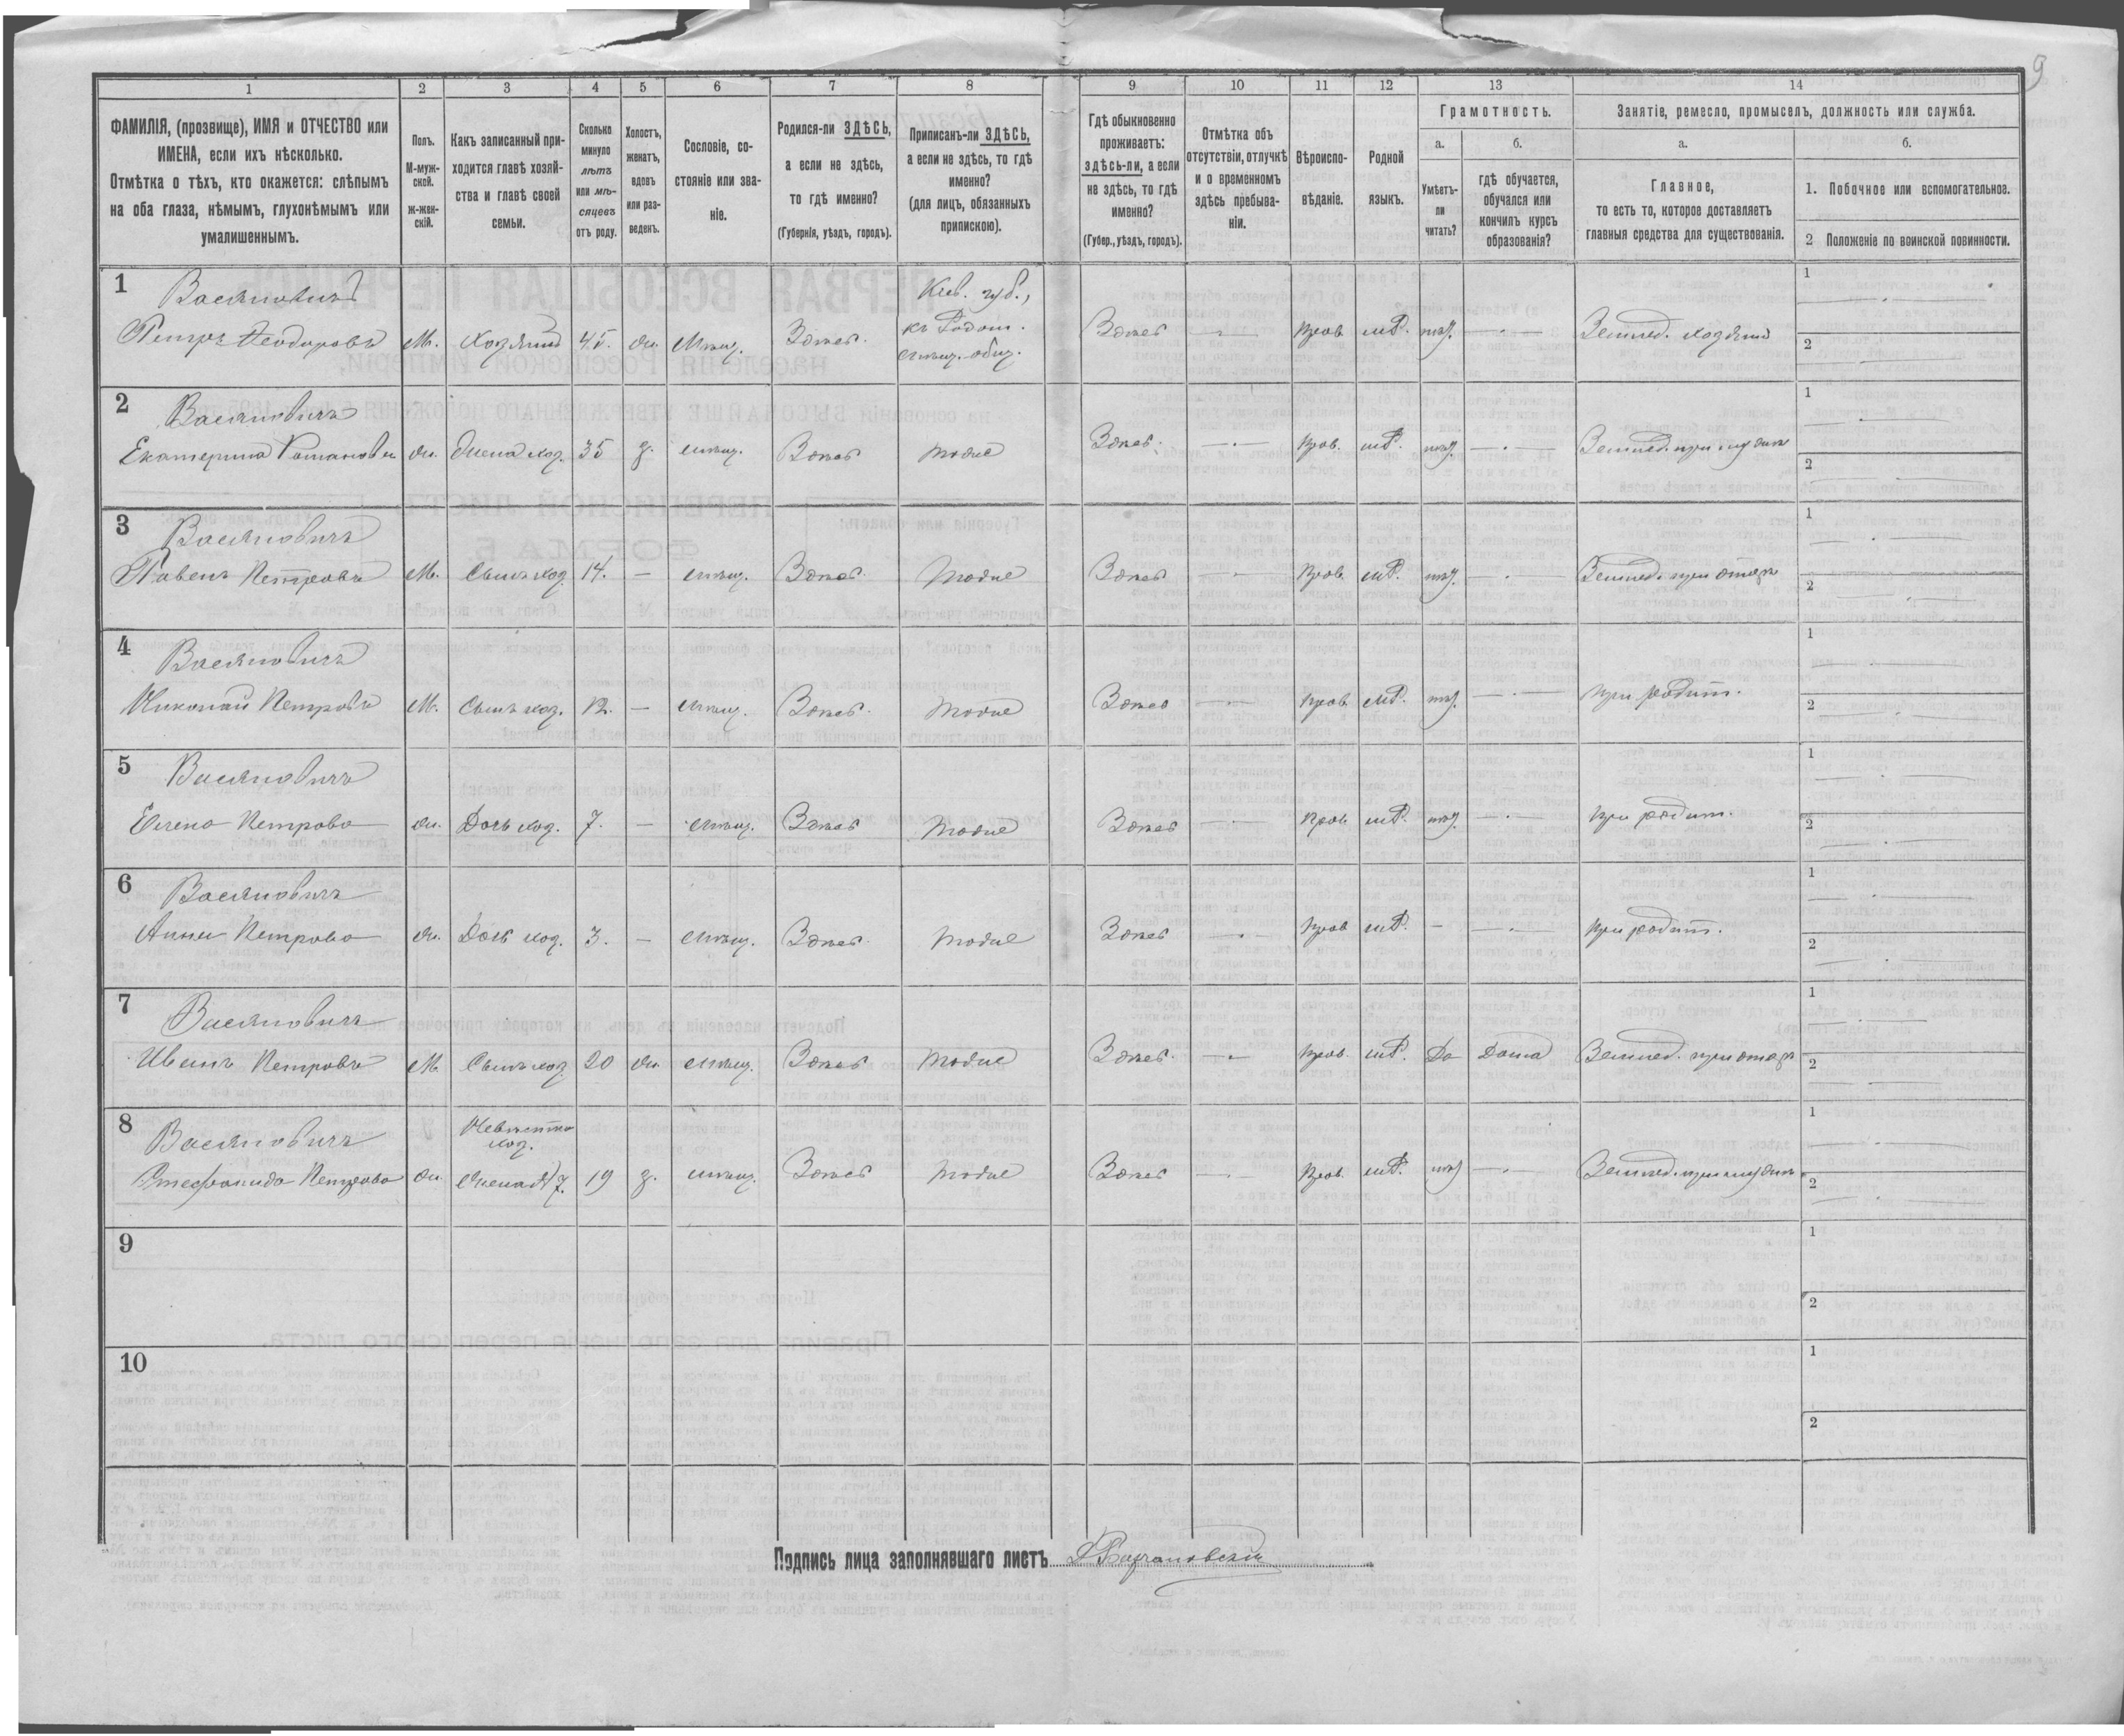 9
1 2 3 4 5 6 7 8 9 10 11 12 13 14
ФАМИЛІЯ, (прозвище), ИМЯ и ОТЧЕСТВО или
ИМЕНА, если ихъ нѣсколько.
Отмѣтка о тѣхъ, кто окажется: слѣпымъ
на оба глаза, нѣмымъ, глухонѣмымъ или
умалишеннымъ.
Полъ.
М-муж-
ской.
ж-жен-
скій.
Какъ записанный при-
ходится главѣ хозяй-
ства и главѣ своей
семьи.
Сколько
минуло
лѣтъ
или мѣ-
сяцевъ
отъ роду.
Холостъ,
женатъ,
вдовъ
или раз-
веденъ.
Сословіе, со-
стояніе или зва-
ніе.
Родился-ли ЗДѢСЬ,
а если не здѣсь,
то гдѣ именно?
(Губернія, уѣздъ, городъ).
Приписанъ-ли ЗДѢСЬ,
а если не здѣсь, то гдѣ
именно?
(для лицъ, обязанныхъ
припискою).
Гдѣ обыкновенно
проживаетъ:
здѣсь-ли, а если
не здѣсь, то гдѣ
именно?
(Губер., уѣздъ, городъ).
Отмѣтка объ
отсутствіи, отлучкѣ
и о временномъ
здѣсь пребыва-
ніи.
Вѣроиспо-
вѣданіе.
Родной
языкъ.
Грамотность.
а.
Умѣетъ-
ли
читать?
б.
гдѣ обучается,
обучался или
кончилъ курсъ
образованія?
Занятіе, ремесло, промыселъ, должность или служба.
а.
Главное,
то есть то, которое доставляетъ
главныя средства для существованія.
б.
1. Побочное или вспомогательное.
2 Положеніе по воинской повинности.
1 Васяновичъ Кіев. губ., 1
Петръ Феодоровъ М. Хозяинъ 45. ж. мѣщ. Здѣсь къ Радом. Здѣсь — прав. мР. нѣт. — Землед. хозяинъ
мѣщ. общ. 2
2 Васяновичъ 1
Екатерина Романова ж. Жена хоз. 35 з. мѣщ. Здѣсь тоже Здѣсь — прав. мР. нѣт. — Землед. при мужѣ 2
3 Васяновичъ 1
Павелъ Петровъ М. Сынъ хоз. 14. — мѣщ. Здѣсь тоже Здѣсь — прав. мР. нѣт. — Землед. при отцѣ 2
4 Васяновичъ 1
Николай Петровъ М. Сынъ хоз. 12. — мѣщ. Здѣсь тоже Здѣсь — прав. мР. нѣт. — при родит. 2
5 Васяновичъ 1
Елена Петрова ж. Дочь хоз. 7. — мѣщ. Здѣсь тоже Здѣсь — прав. мР. нѣт. — при родит. 2
6 Васяновичъ 1
Анна Петрова ж. Дочь хоз. 3. — мѣщ. Здѣсь тоже Здѣсь — прав. мР. — — при родит. 2
7 Васяновичъ 1
Иванъ Петровъ М. Сынъ хоз. 20 ж. мѣщ. Здѣсь тоже Здѣсь — прав. мР. Да Дома Землед. при отцѣ 2
8 Васяновичъ Невѣстка 1
хоз.
Стефанида Петрова ж. жена № 7. 19 з. мѣщ. Здѣсь тоже Здѣсь — прав. мР. нѣт — Землед. при мужѣ 2
9 1
2
10 1
2
Подпись лица заполнявшаго листъ